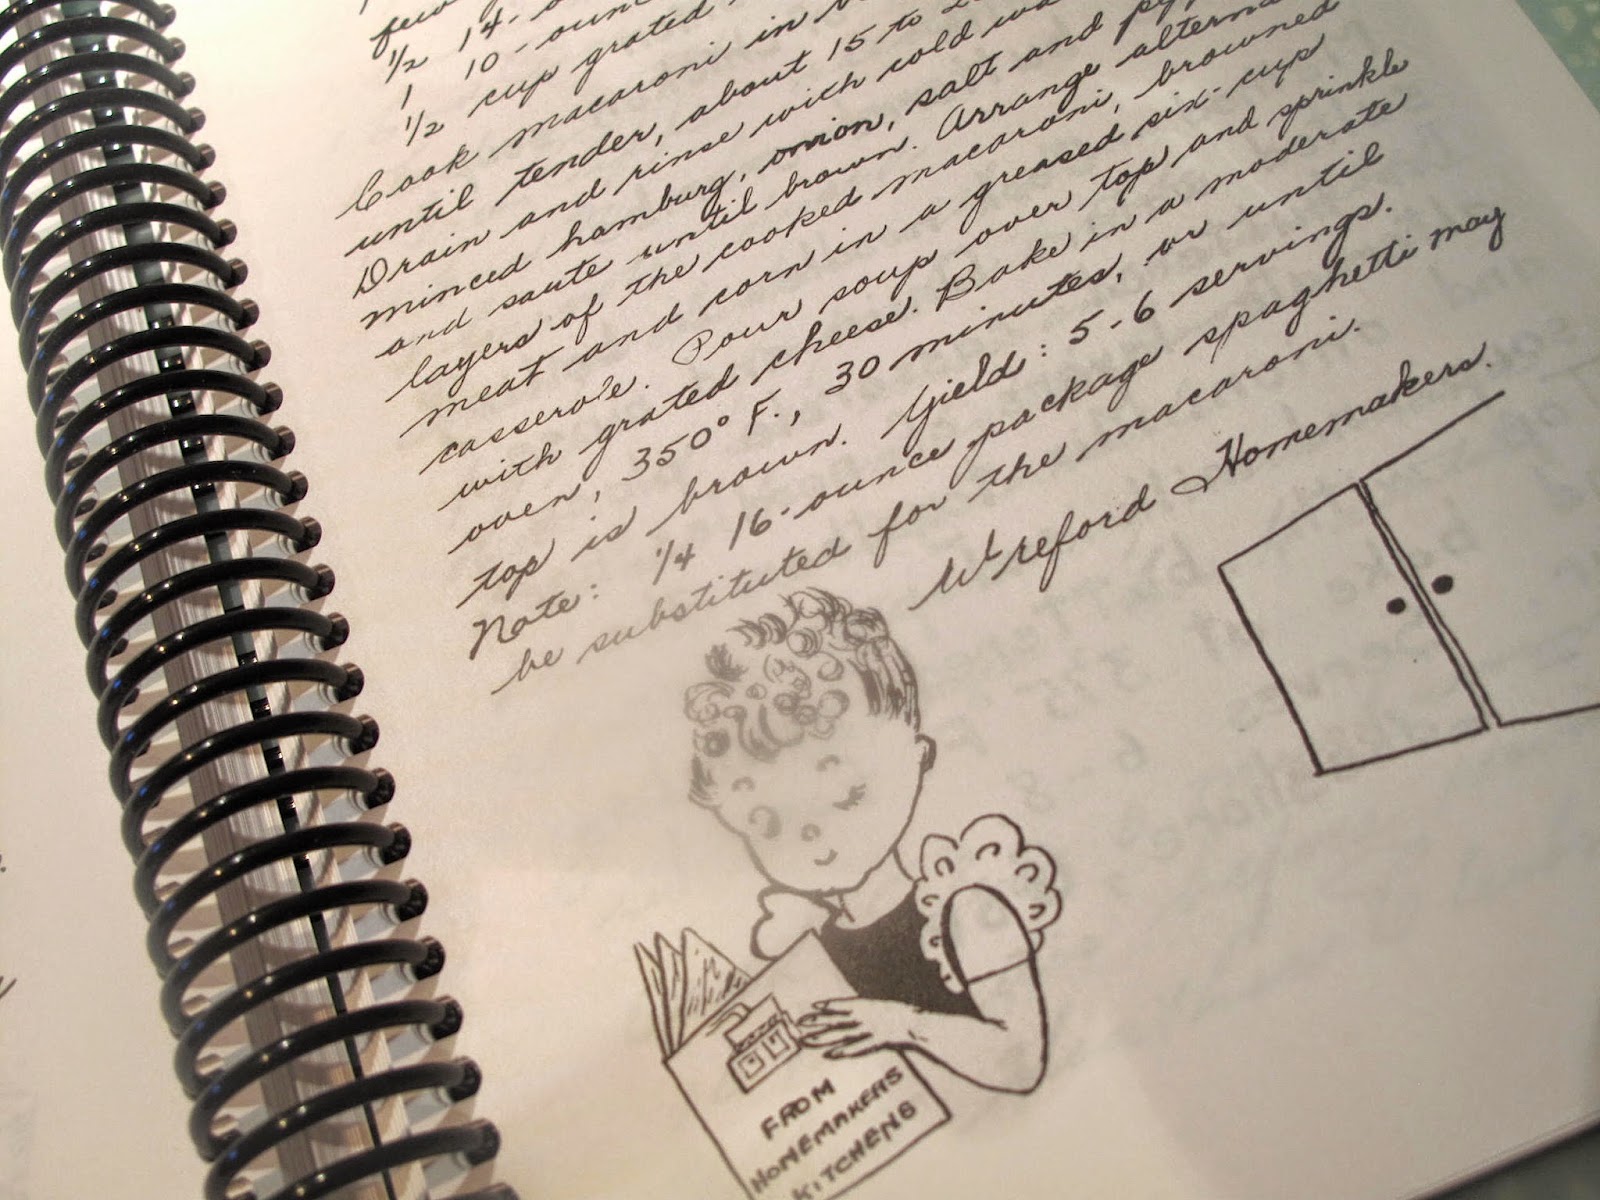 few
1/2 14-
1 10-ounce
1/2 cup grated
Cook macaroni in
until tender, about 15 to
Drain and rinse with cold
minced hamburg, onion, salt and
and saute until brown. Arrange
layers of the cooked macaroni, browned
meat and corn in a greased six-cup
casserole. Pour soup over top and sprinkle
with grated cheese. Bake in a moderate
oven, 350° F., 30 minutes, or until
top is brown. Yield: 5-6 servings.
Note: 1/4 16-ounce package spaghetti may
be substituted for the macaroni.
Wreford Homemakers.
FROM
HOMEMAKERS
KITCHENS